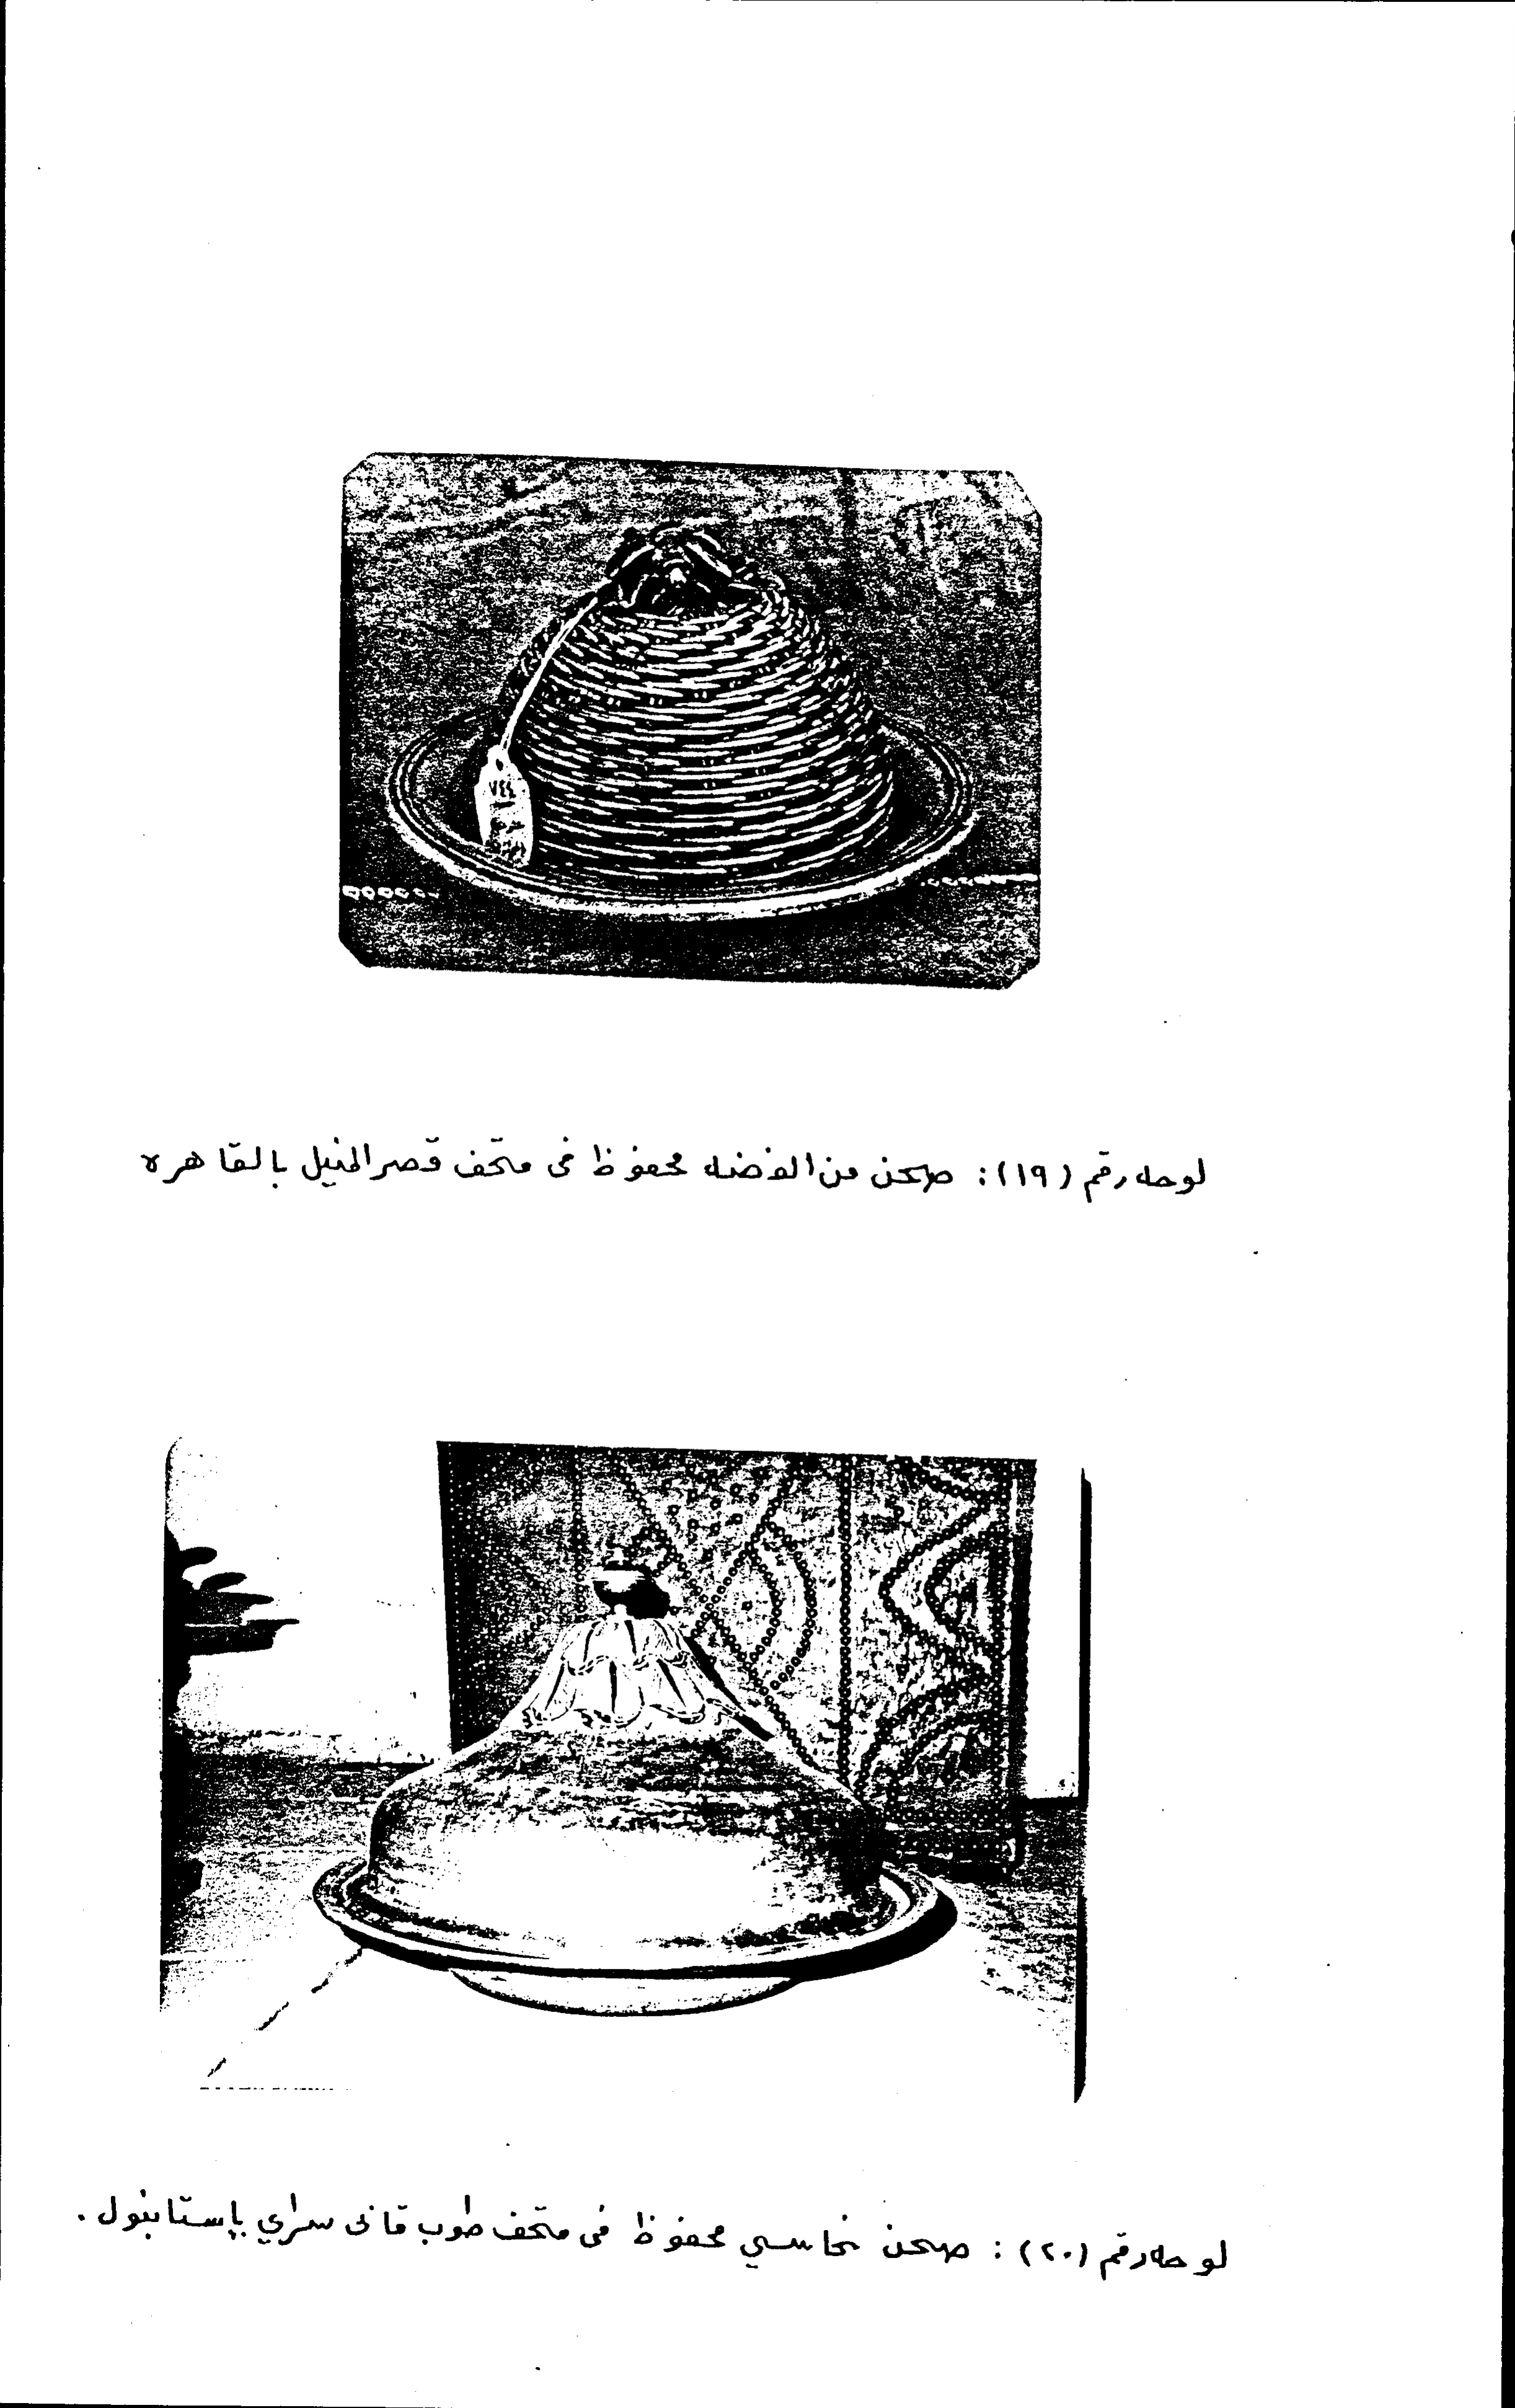 ٧٤٤
لوحه رقم (١٩): صحن من الفضه محفوظ فى متحف قصر المنيل بالقاهره
لوحه رقم (٢٠): صحن نحاسي محفوظ فى متحف طوب قابى سراي بإستانبول.